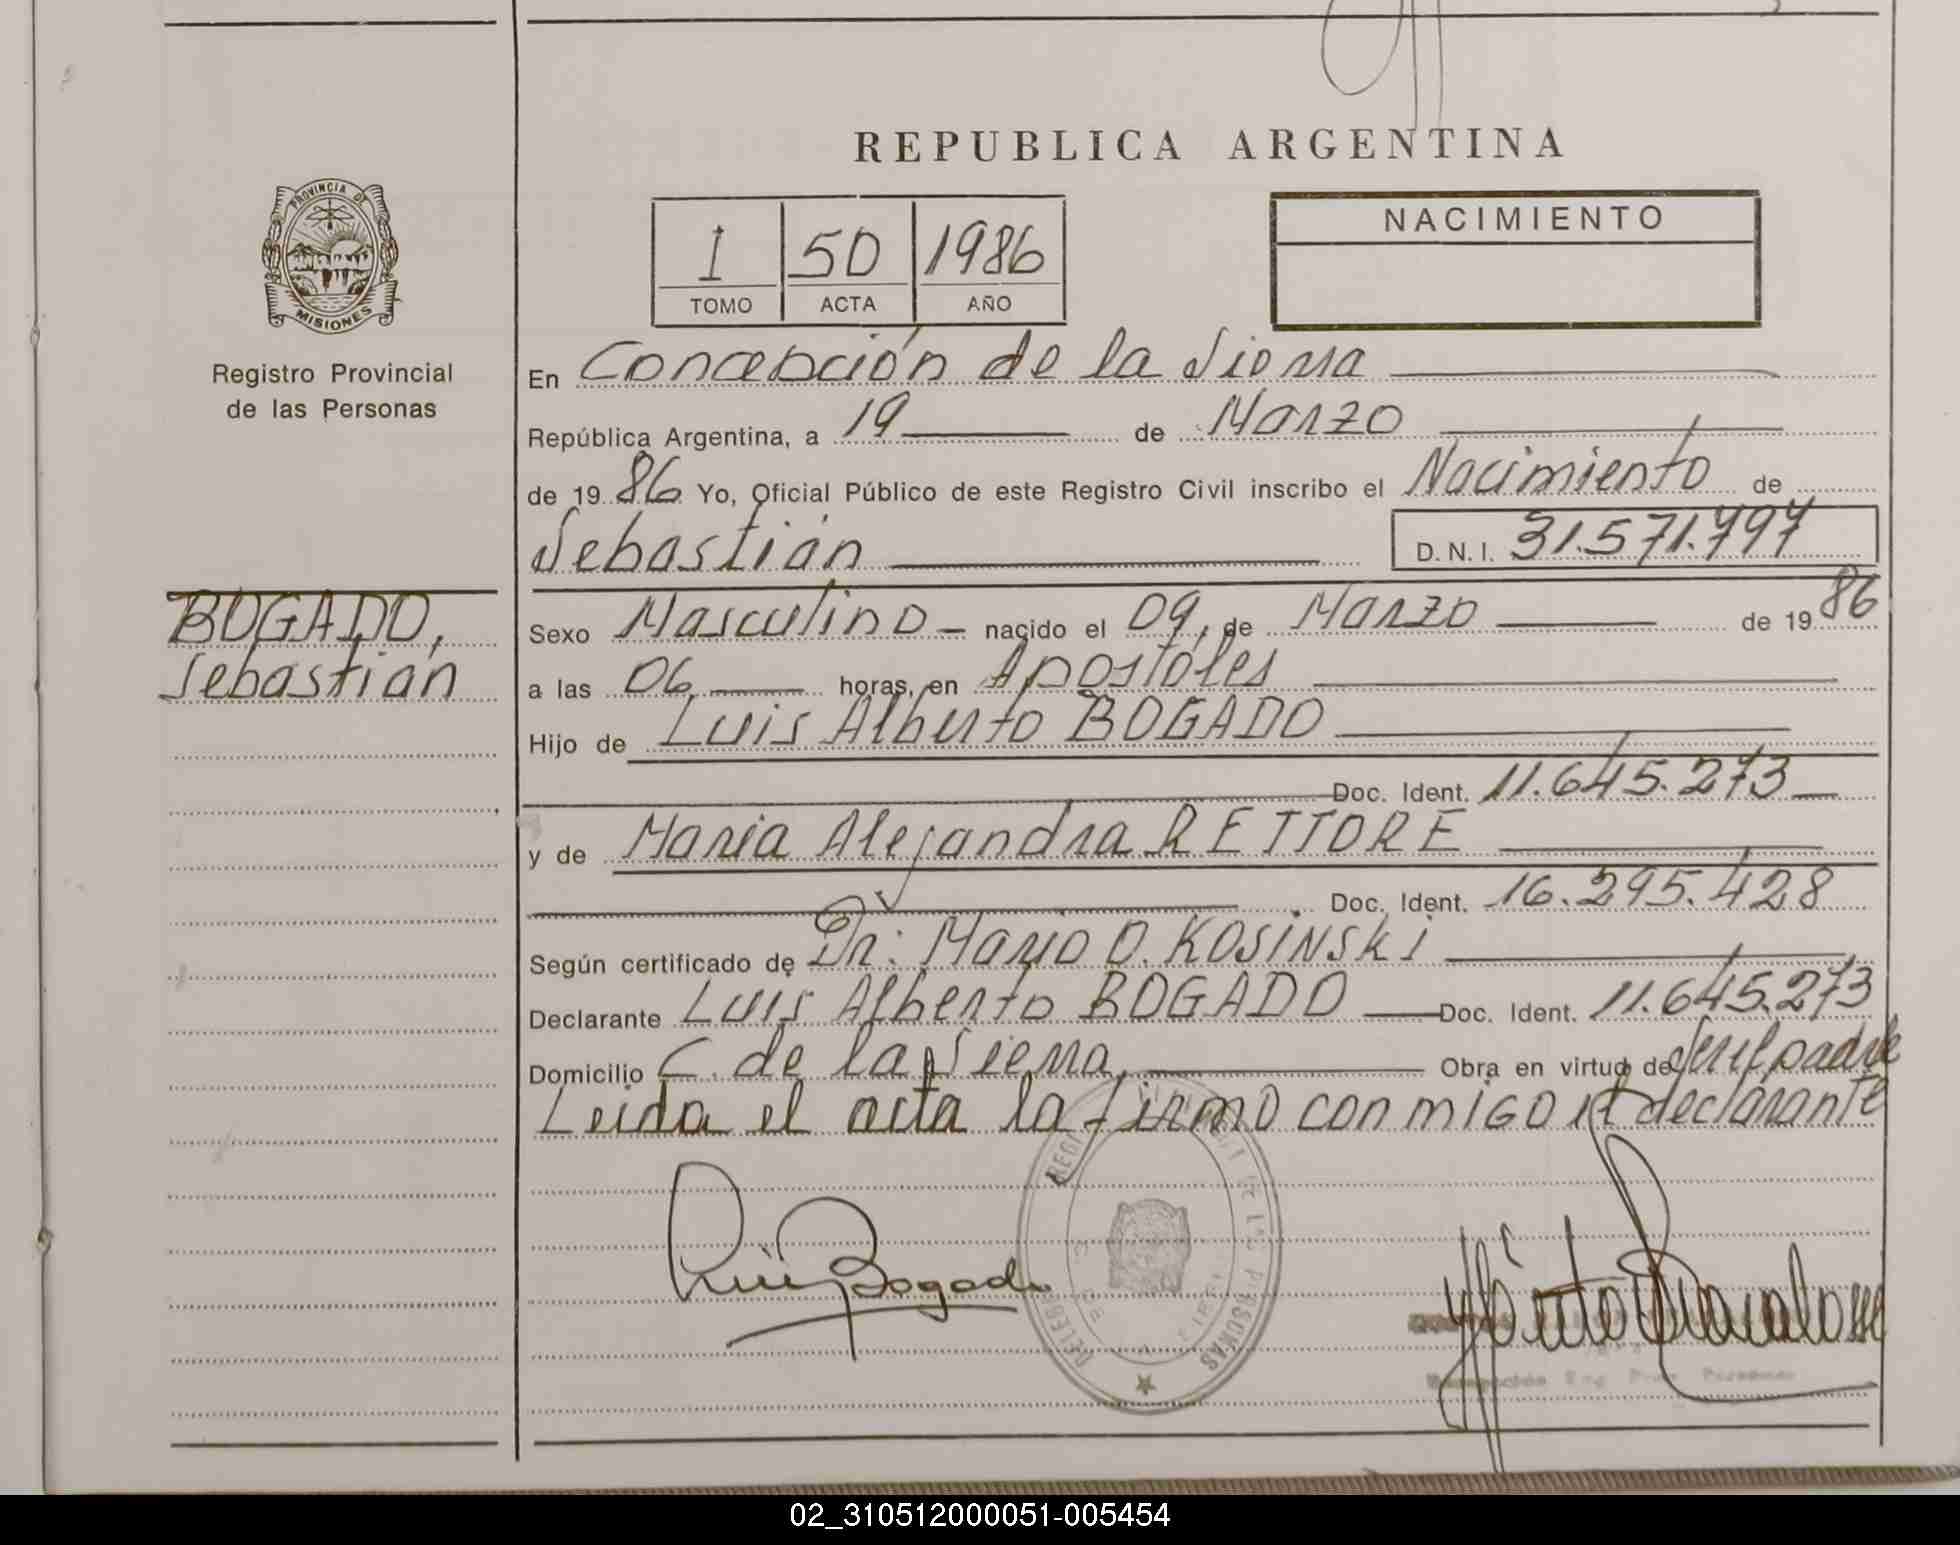 REPUBLICA ARGENTINA
PROVINCIA DE
MISIONES
Registro Provincial
de las Personas
1 50 1986
TOMO ACTA AÑO
NACIMIENTO
En Concepción de la Sierra
República Argentina, a 19 de Marzo
de 1986 Yo, Oficial Público de este Registro Civil inscribo el Nacimiento de
Sebastián D.N.I. 31.571.797
BOGADO,
Sebastián
Sexo Masculino nacido el 09 de Marzo de 1986
a las 06 horas, en Apóstoles
Hijo de Luis Alberto BOGADO
Doc. Ident. 11.645.273
y de Maria Alejandra RETTORE
Doc. Ident. 16.295.428
Según certificado de Dr: Mario O. KOSiNSKi
Declarante Luis Alberto BOGADO Doc. Ident. 11.645.273
Domicilio C. de la Sierra, Obra en virtud de ser el padre
Leida el acta la firmó conmigo el declarante
Luis Bogado
02_310512000051-005454